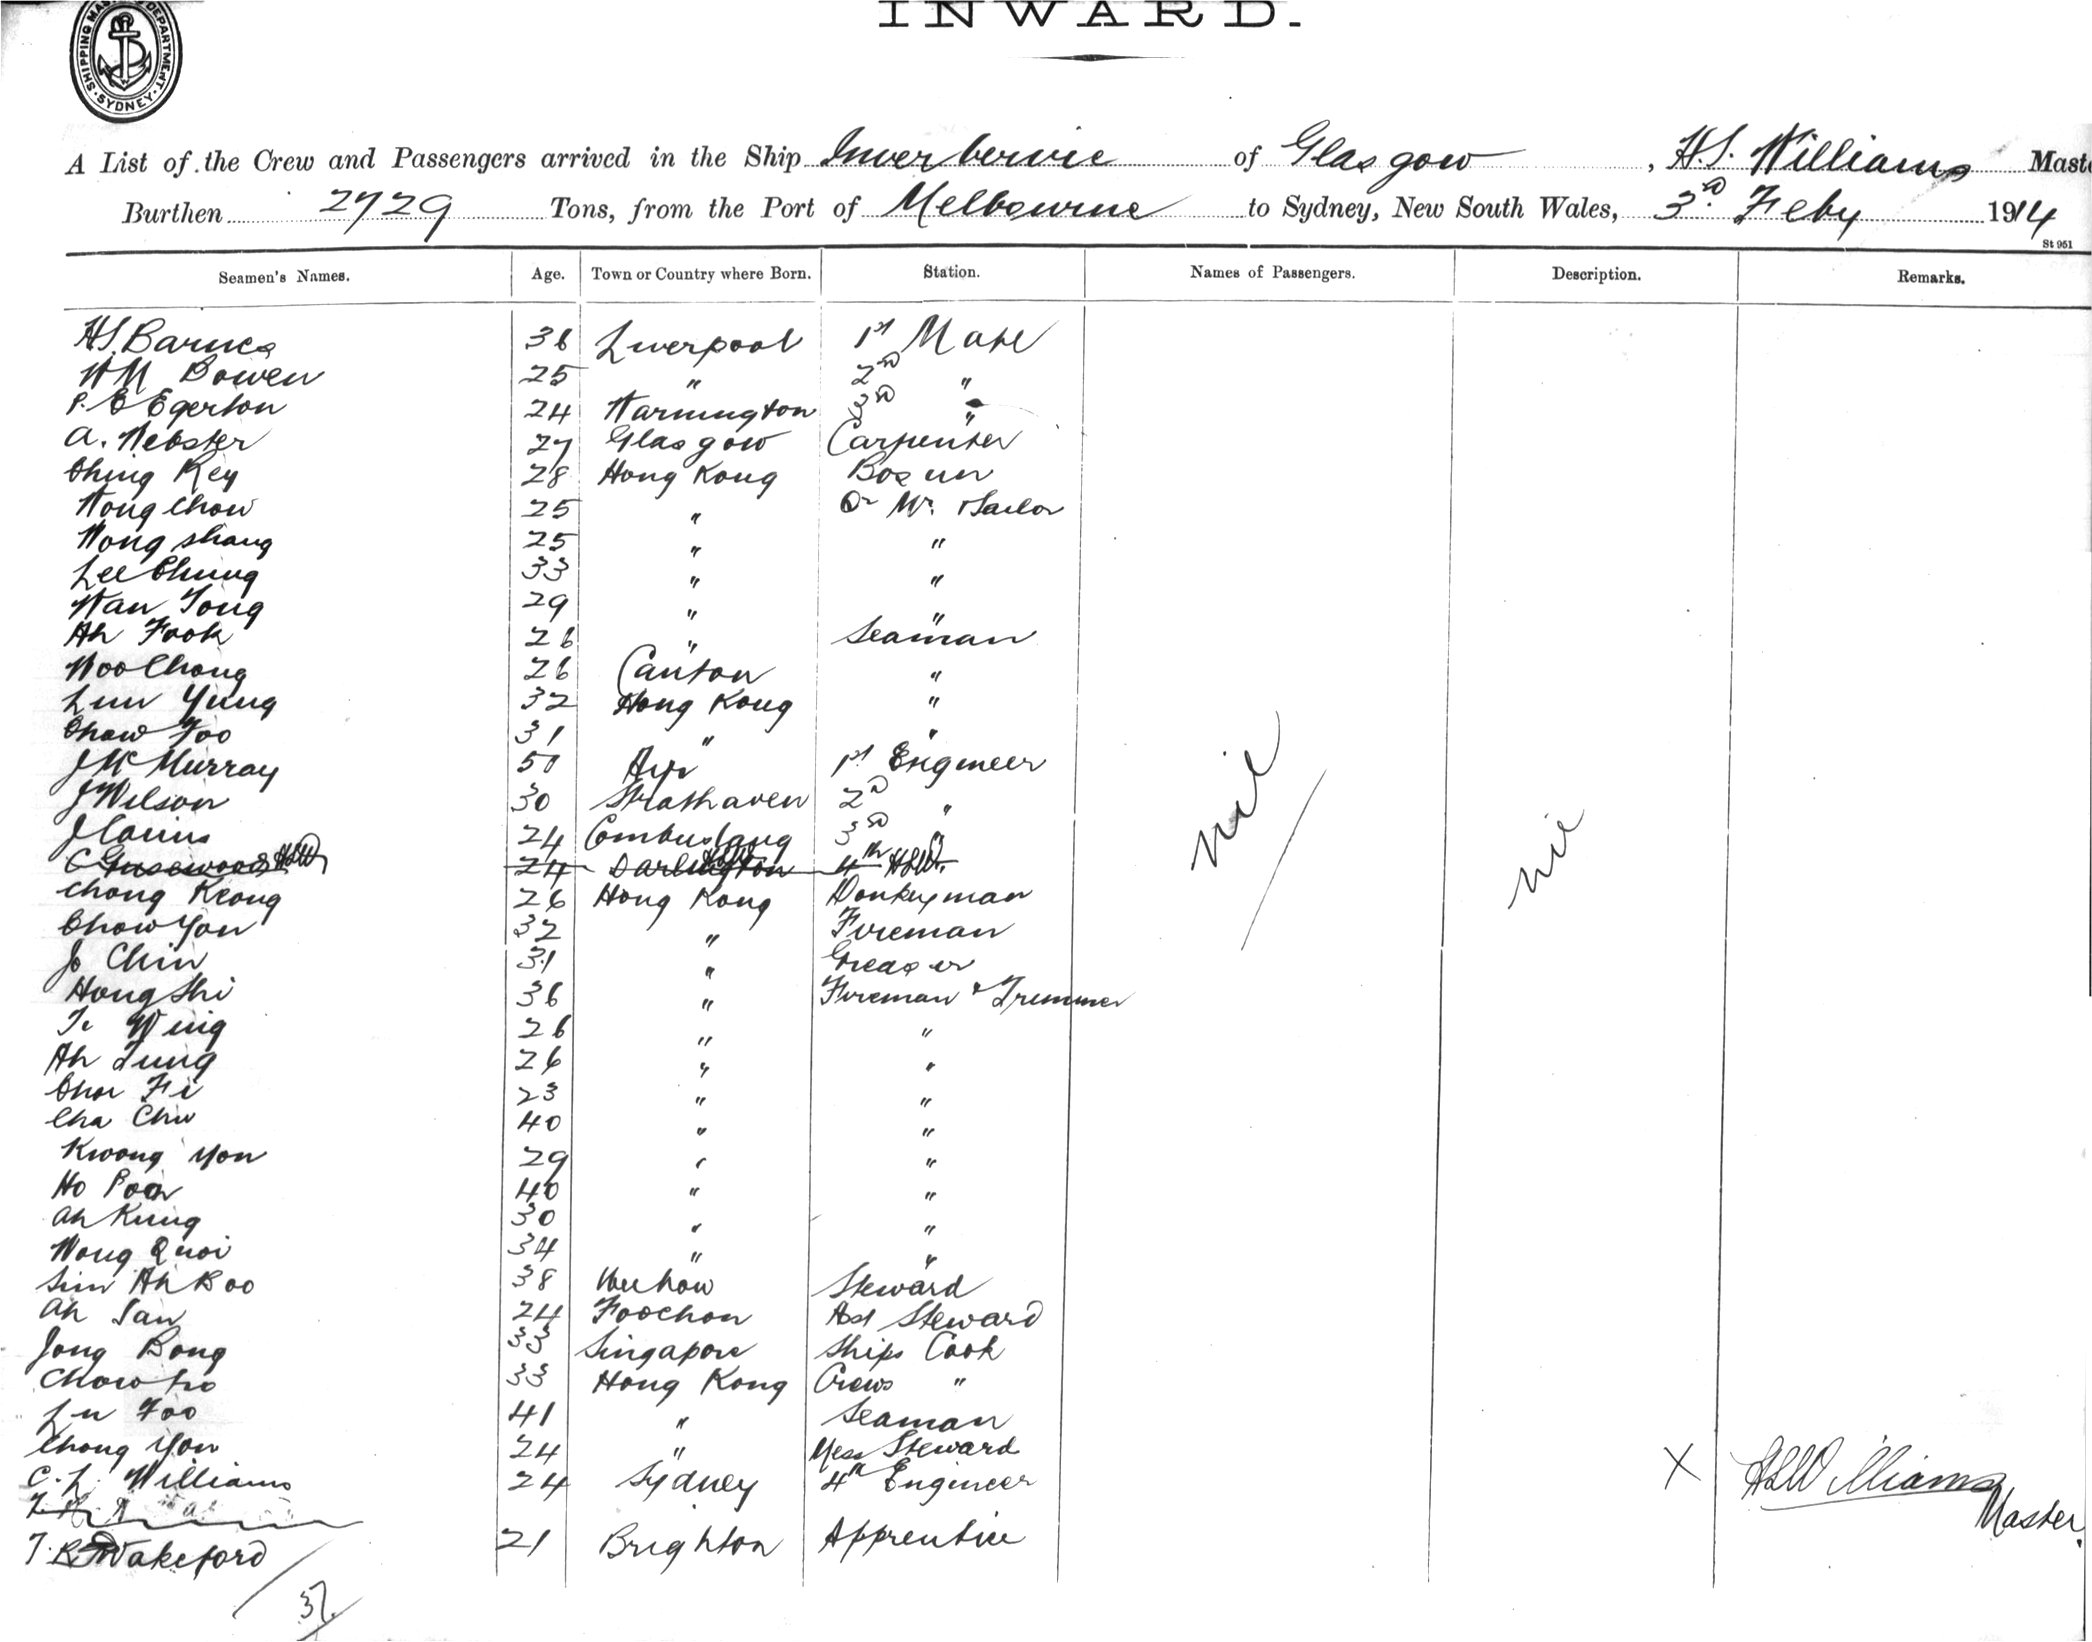 INWARD.
SHIPPING MASTER'S DEPARTMENT SYDNEY
A List of the Crew and Passengers arrived in the Ship Inverbervie of Glasgow, H.S. Williams Maste
Burthen 2729 Tons, from the Port of Melbourne to Sydney, New South Wales, 3rd Feby 1914
St 951
Seamen's Names. Age. Town or Country where Born. Station. Names of Passengers. Description. Remarks.
H.S. Barnes 36 Liverpool 1st Mate
W M Bowen 25 " 2nd "
P. E Egerton 24 Warmington 3rd "
A. Webster 27 Glasgow Carpenter
Ching Key 28 Hong Kong Bosun
Wong Chow 25 " Qr Mr. & Sailor
Wong Shang 25 " "
Lee Chung 33 " "
Wan Tong 29 " "
Ah Fook 26 " Seaman
Woo Chong 26 Canton "
Lun Yung 32 Hong Kong "
Chow Foo 31 " "
J McMurray 51 Ayr 1st Engineer
J Wilson 30 Strathaven 2nd "
J Cairns 24 Cambuslang 3rd "
24 Darlington 4th HSW
Chong Keong 26 Hong Kong Donkeyman
Chow Yon 32 " Fireman
Jo Chin 31 " Greaser
Hong Shi 36 " Fireman & Trimmer
Te Wing 26 " "
Ah Tung 26 " "
Choi Fi 23 " "
Cha Chu 40 " "
Kwong Yon 29 " "
Ho Poon 40 " "
Ah Kung 30 " "
Wong Quoi 34 " "
Sim Ah Boo 38 Wuhow Steward
Ah San 24 Foochow Asst Steward
Jong Bong 33 Singapore Ships Cook
Chow Ho 33 Hong Kong Crews "
Lu Foo 41 " Seaman
Chong Yon 24 " Mess Steward
C. L. Williams 24 Sydney 4th Engineer X HSWilliams
Master.
T. R. Wakeford 21 Brighton Apprentice
nil
nil
37